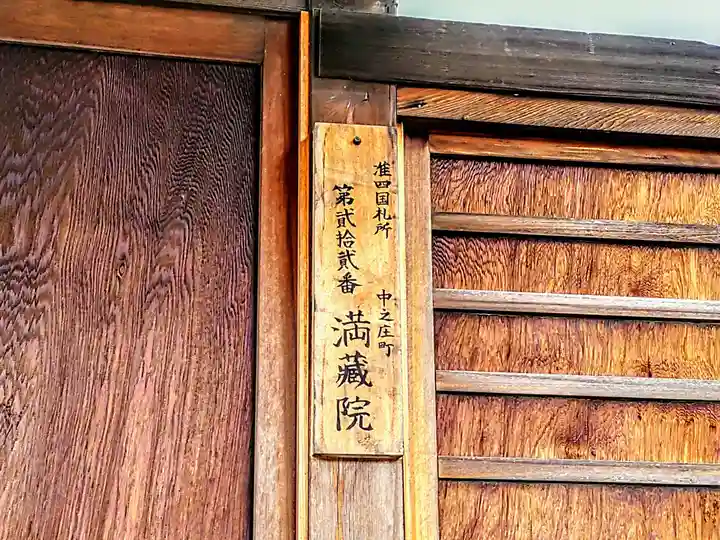 准四国札所
中之庄町
第貳拾貳番
満藏院